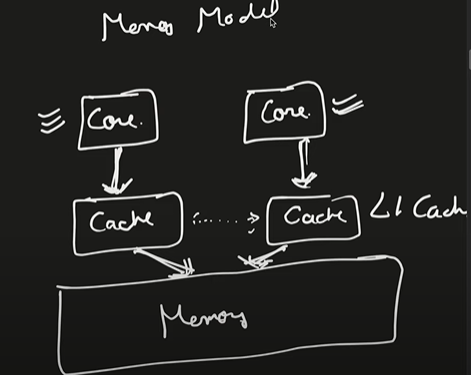 Memory Model
Core. Core.
Cache Cache L1 Cach
Memory